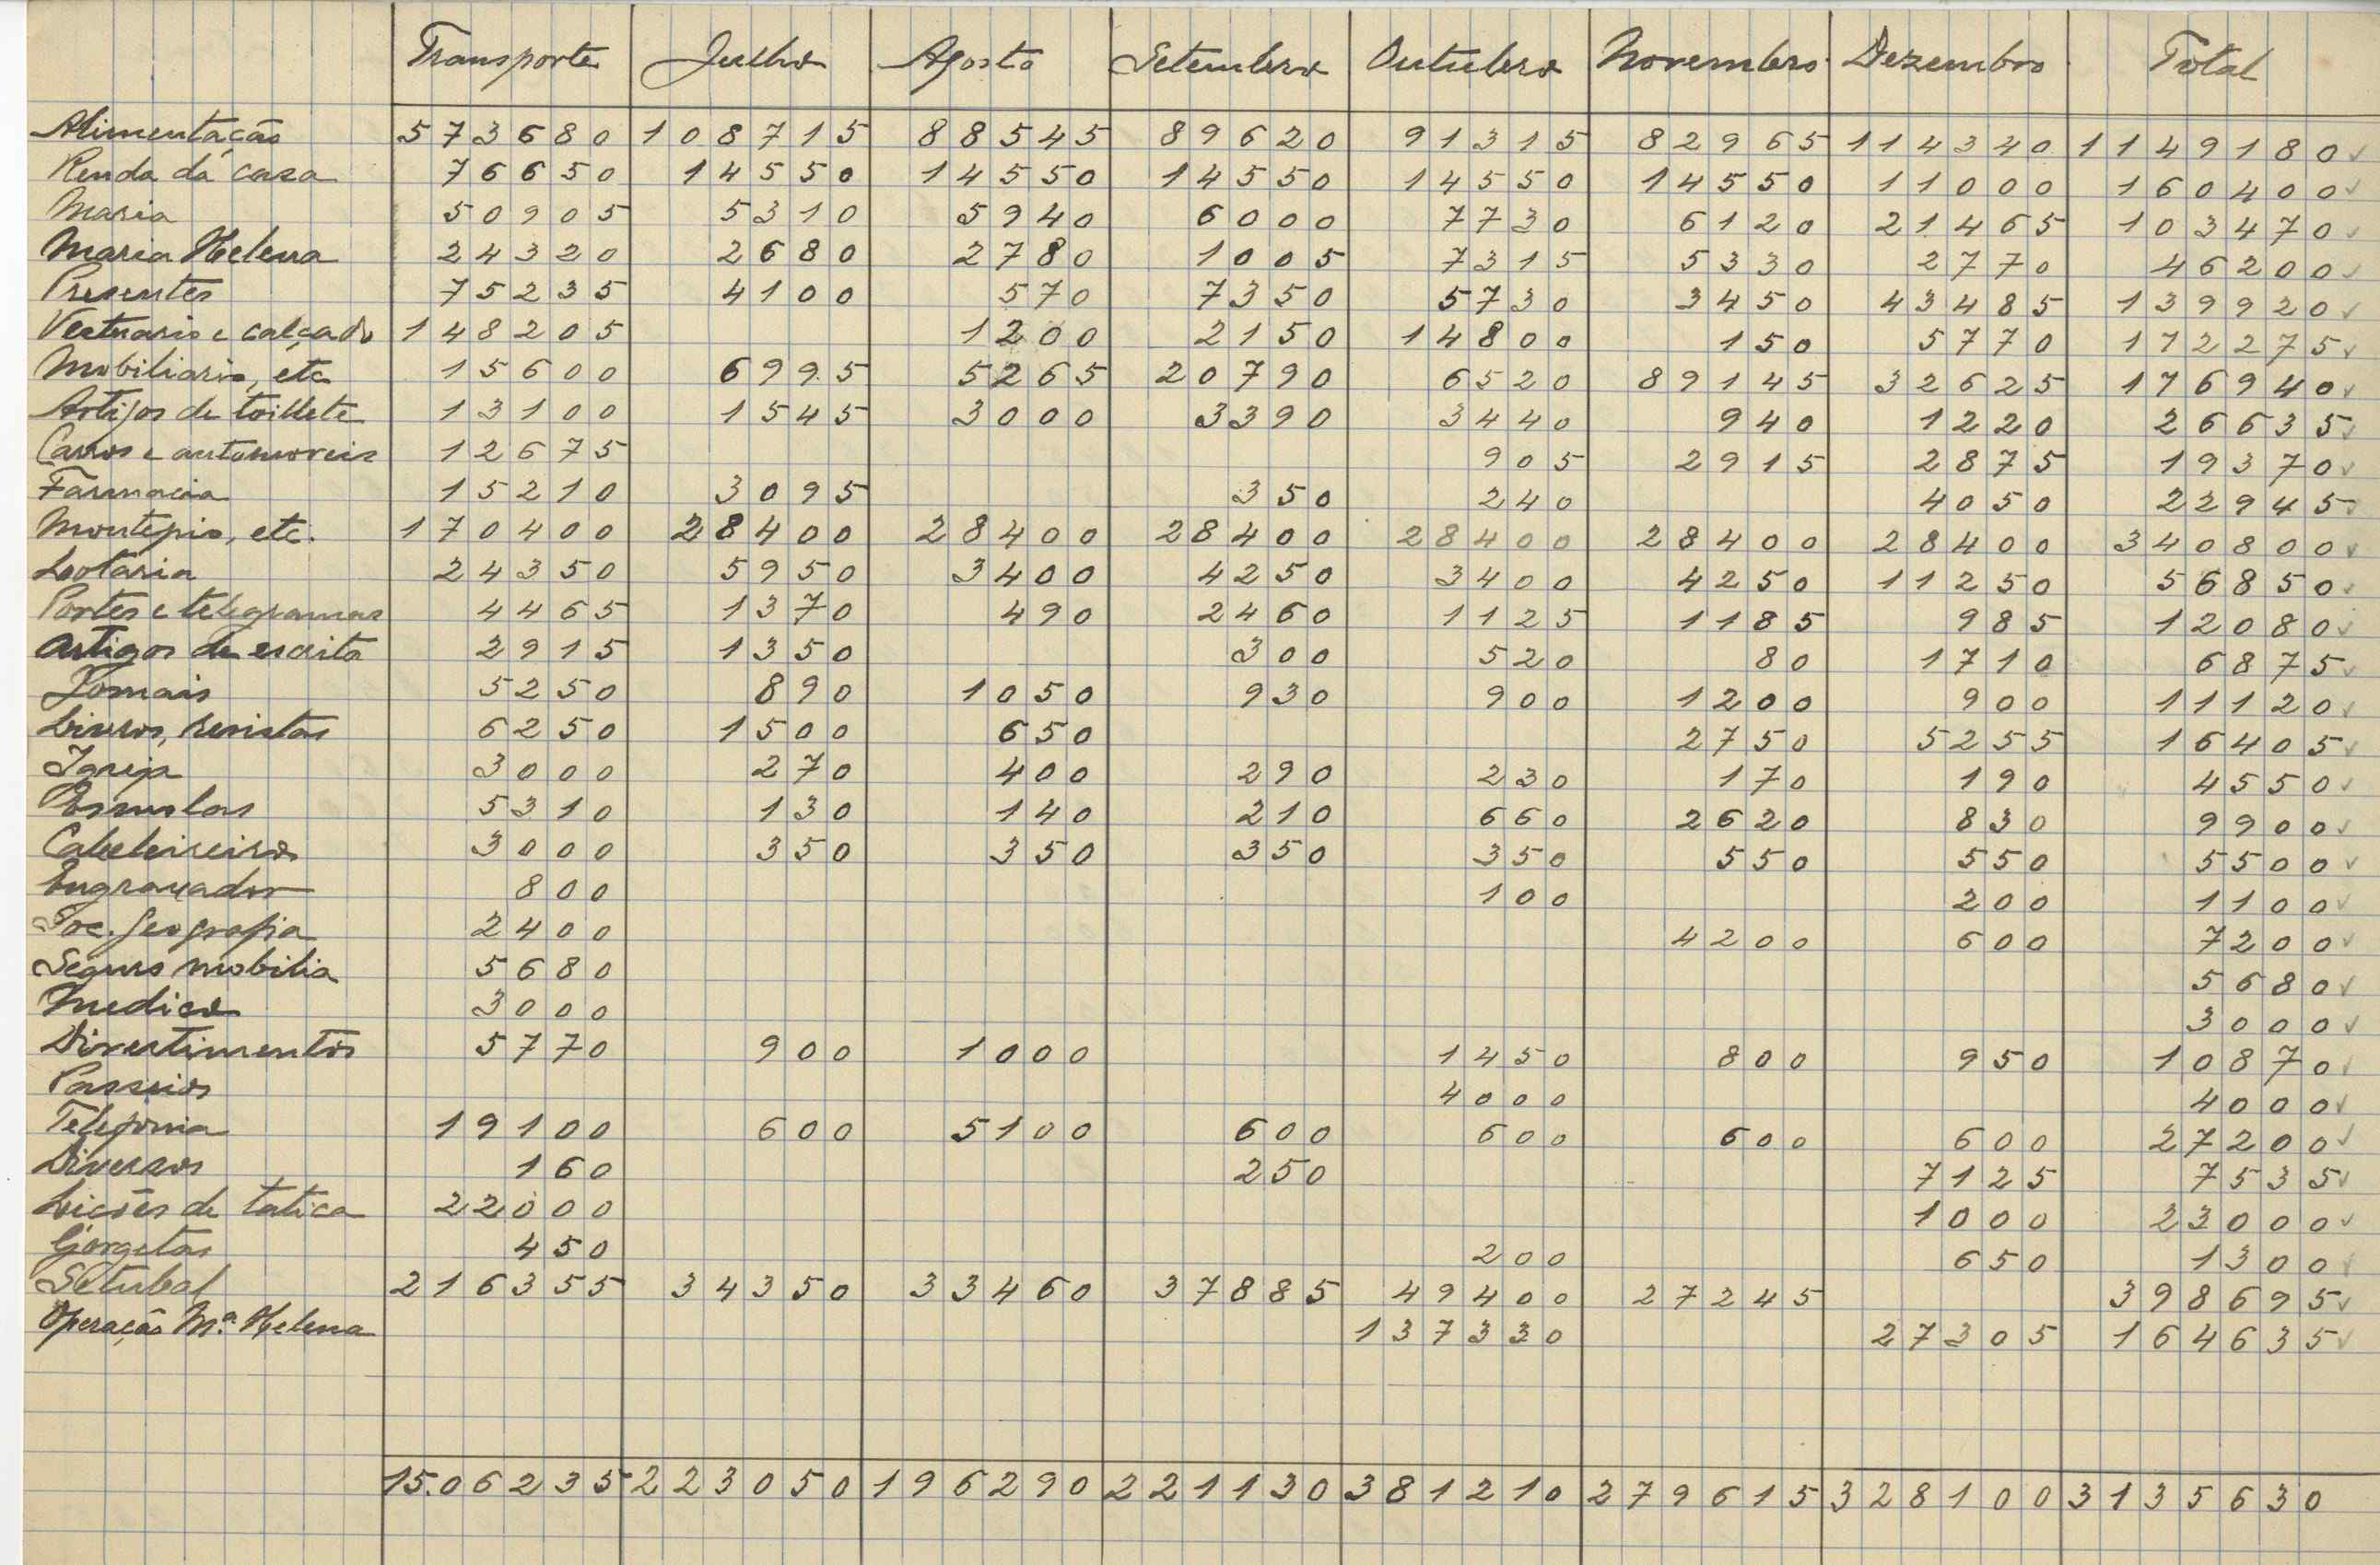 Transporte Julho Agosto Setembro Outubro Novembro Dezembro Total
Alimentação 573680 108715 88545 89620 91315 82965 114340 1149180 ✓
Renda da casa 76650 14550 14550 14550 14550 14550 11000 160400 ✓
Maria 50905 5310 5940 6000 7730 6120 21465 103470 ✓
Maria Helena 24320 2680 2780 1005 7315 5330 2770 46200 ✓
Presentes 75235 4100 570 7350 5730 3450 43485 139920 ✓
Vestuario e calçado 148205 1200 2150 14800 150 5770 172275 ✓
Mobiliario, etc 15600 6995 5265 20790 6520 89145 32625 176940 ✓
Artigos de toillete 13100 1545 3000 3390 3440 940 1220 26635 ✓
Carros e automoveis 12675 905 2915 2875 19370 ✓
Farmacia 15210 3095 350 240 4050 22945 ✓
Montepio, etc. 170400 28400 28400 28400 28400 28400 28400 340800 ✓
Lotaria 24350 5950 3400 4250 3400 4250 11250 56850 ✓
Portes e telegramas 4465 1370 490 2460 1125 1185 985 12080 ✓
Artigos de escrita 2915 1350 300 520 80 1710 6875 ✓
Jornais 5250 890 1050 930 900 1200 900 11120 ✓
Livros, revistas 6250 1500 650 2750 5255 16405 ✓
Igreja 3000 270 400 290 230 170 190 4550 ✓
Esmolas 5310 130 140 210 660 2620 830 9900 ✓
Cabeleireiro 3000 350 350 350 350 550 550 5500 ✓
Engraxador 800 100 200 1100 ✓
Soc. Geografia 2400 4200 600 7200 ✓
Seguro mobilia 5680 5680 ✓
Medico 3000 3000 ✓
Divertimentos 5770 900 1000 1450 800 950 10870 ✓
Passeios 4000 4000 ✓
Telefonia 19100 600 5100 600 600 600 600 27200 ✓
Diversos 160 250 7125 7535 ✓
Lições de tatica 22000 1000 23000 ✓
Gorgetas 450 200 650 1300 ✓
Setubal 216355 34350 33460 37885 49400 27245 398695 ✓
Operação Mª. Helena 137330 27305 164635 ✓
15.06235 223050 196290 221130 381210 279615 328100 3135630